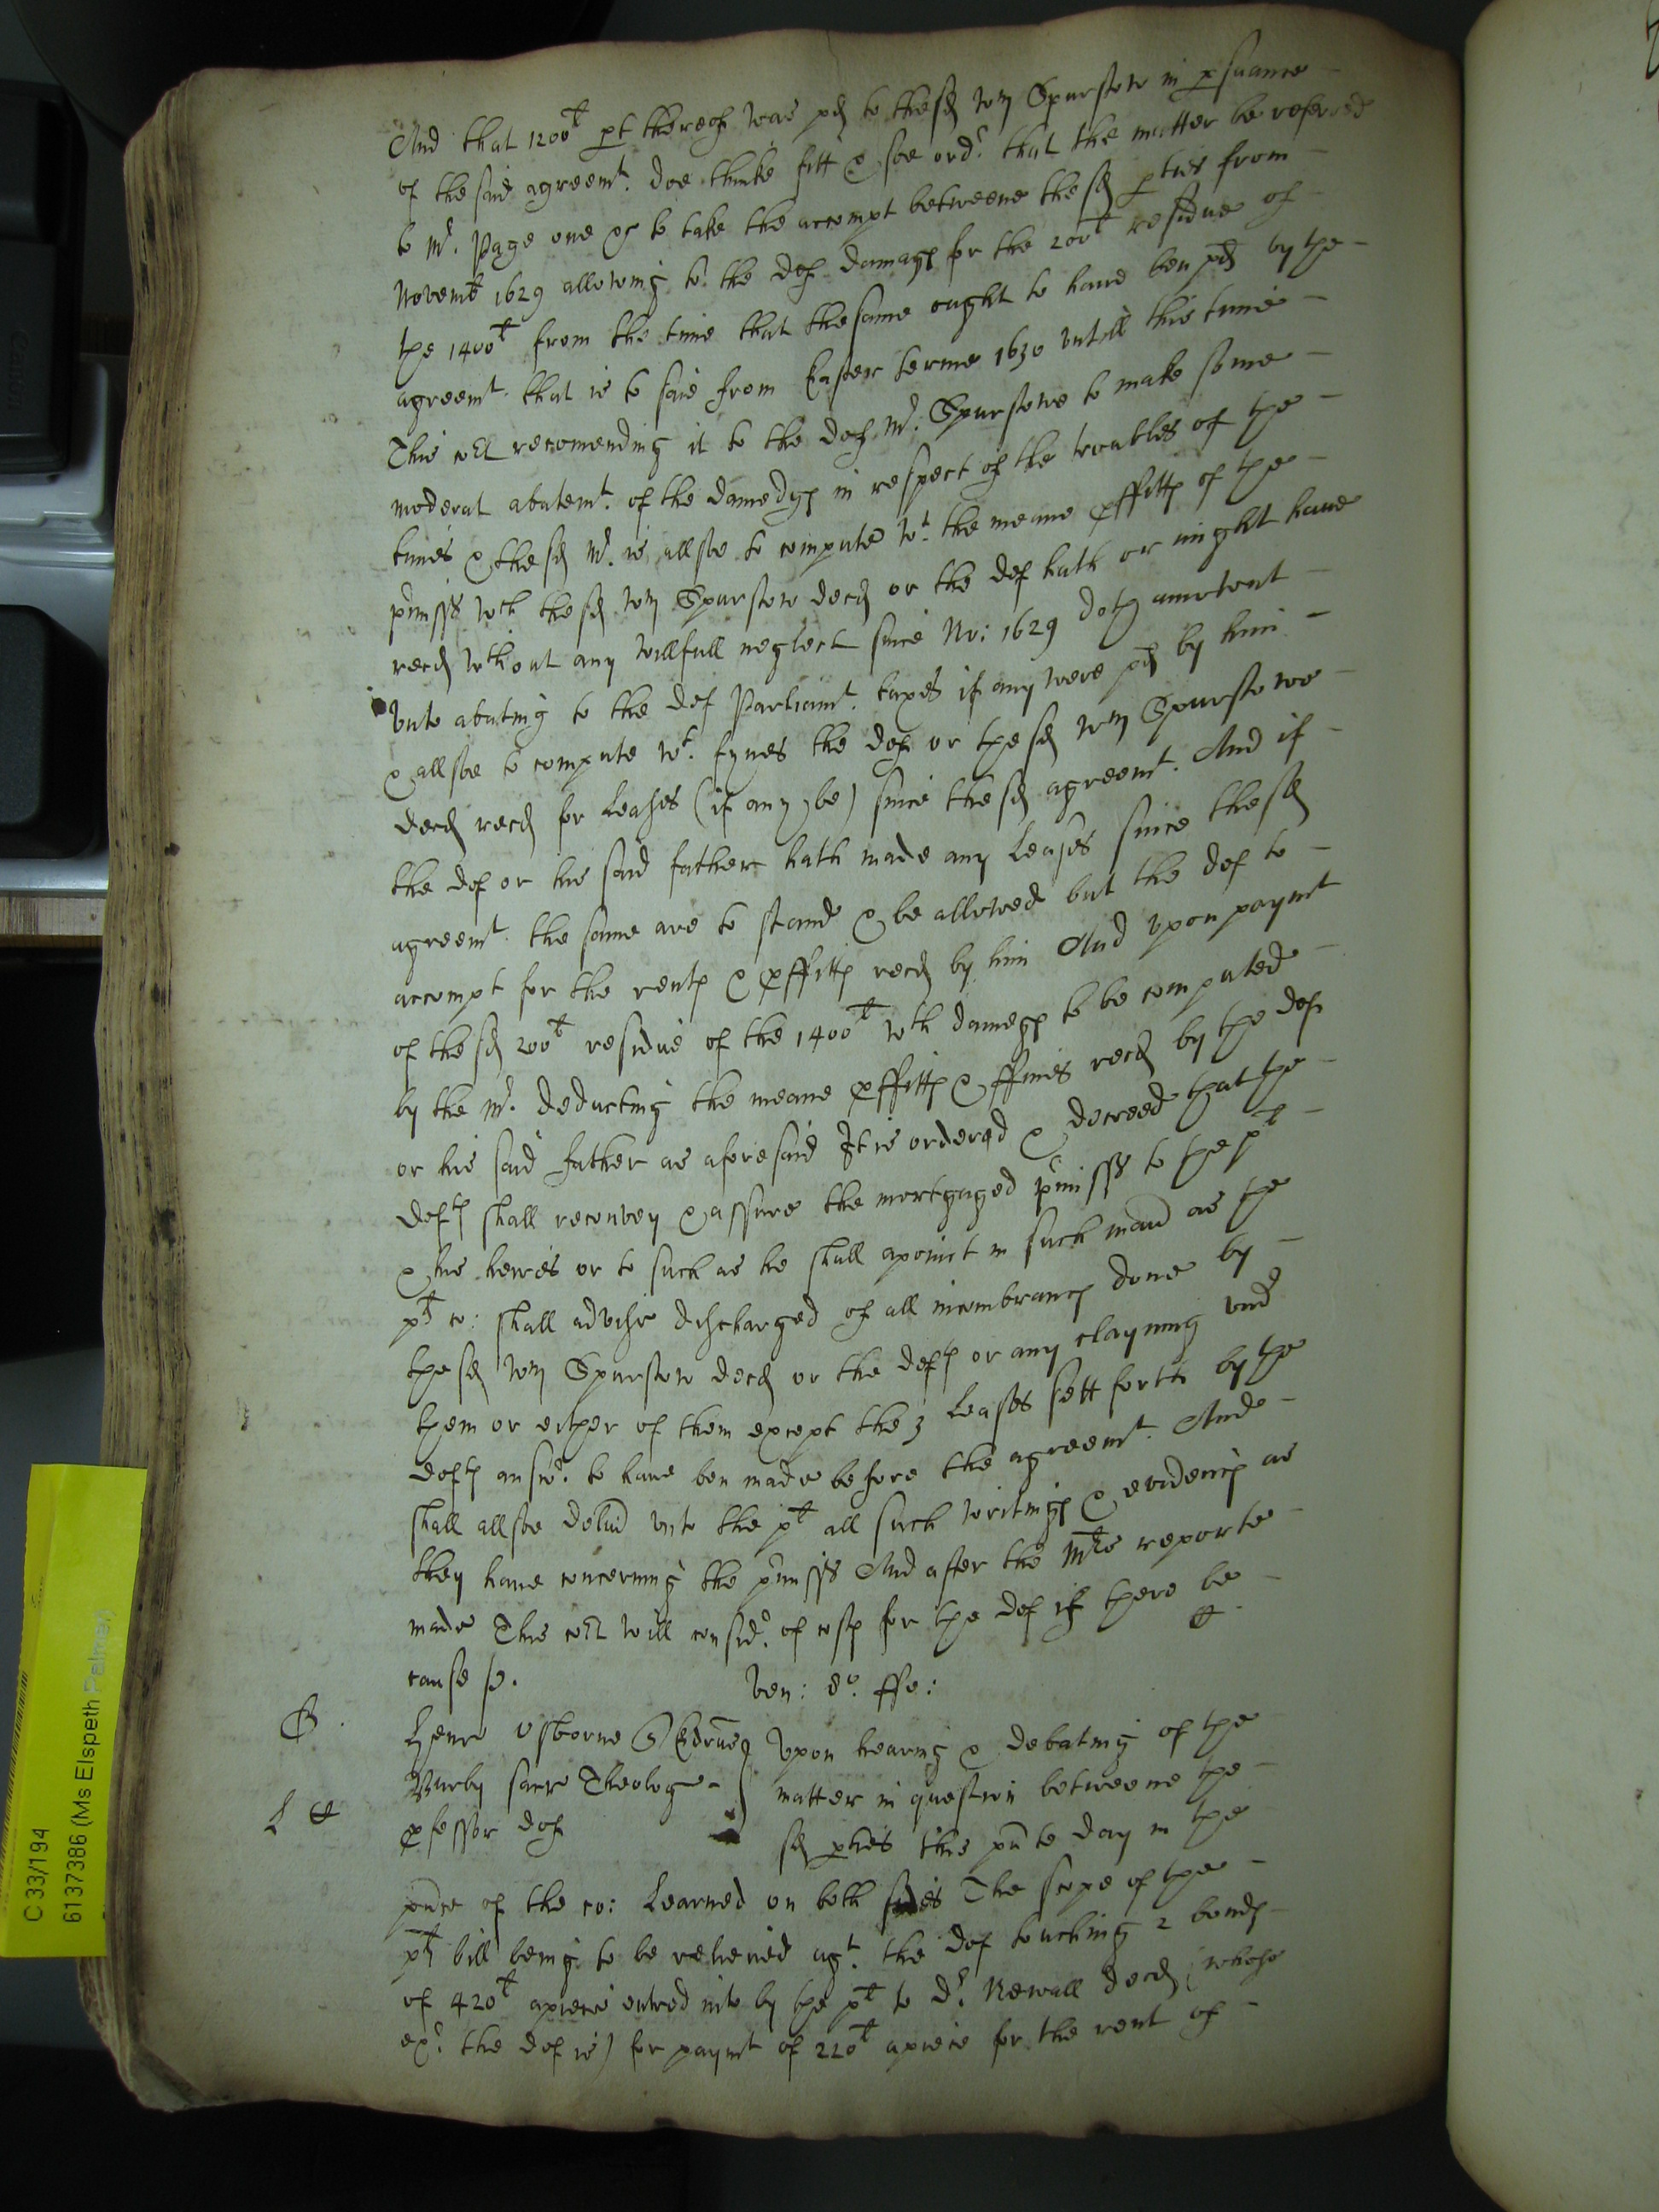 And that 1200l pt thereof was pd to the sd Wm Spurstow in psuance
of the said agreemt. doe thinke fitt & soe ordr. that the matter be referred
to Mr. Page one &c to take the accompt betweene the sd pties from
Novemb 1629 allowing to the def damages for the 200l residue of
the 1400l from the time that the same ought to have ben pd by the
agreemt. that is to saie from Easter terme 1630 untill this time
This cort recomending it to the def Mr. Spurstowe to make some
moderat abatemt. of the damedges in respect of the troubles of the
times & the sd Mr. is allsoe to compute wt. the meane pffitts of the
pmisss wch the sd Wm Spurstow decd or the def hath or might have
recd wthout any willfull neglect since No: 1629 doth amount
unto abating to the def Parliamt. taxes if any were pd by him
& allsoe to compute wt. fynes the def or the sd Wm Spurstowe
decd recd for leases (if any be) since the sd agreemt. And if
the def or his said father hath made any leases since the sd
agreemt. the same are to stand & be allowed but the def to
accompt for the rents & pffitts recd by him And upon paymt
of the sd 200l residue of the 1400l wth damages to be computed
by the Mr. deducting the meane pffitts & ffines recd by the def
or his said father as aforesaid It is ordered & decreed that the
defts shall reconvey & assure the mortgaged pmisss to the pl
& his heires or to such as he shall apoint in such mann as the
pl co: shall advise discharged of all incombrances done by
the sd Wm Spurstow decd or the defts or any clayming und
them or either of them except the 3 leases sett forth by the
defts answr. to have ben made before the agreemt. And
shall allsoe delivd unto the pl all such writings & evidences as
they have concerning the pmisss And after the Mrs reporte
made This cort will considr. of costs for the def if there be
cause so.
ven: do. ffe:
B.
L
Henr Osborne
Burby sacr Theolog
pfessor def
Upon hearing & debating of the
matter in question betweene the
sd pties this pnte day in the
pnce of the co: learned on both sides The scope of the
pls bill being to be releived agt. the def touching 2 bonds
of 420l apeice entred into by the pl to Dr. Newall decd (whose
exr. the def is) for paymt of 210l apeice for the rent of
C 33/194
6137386 (Ms Elspeth Palmer)